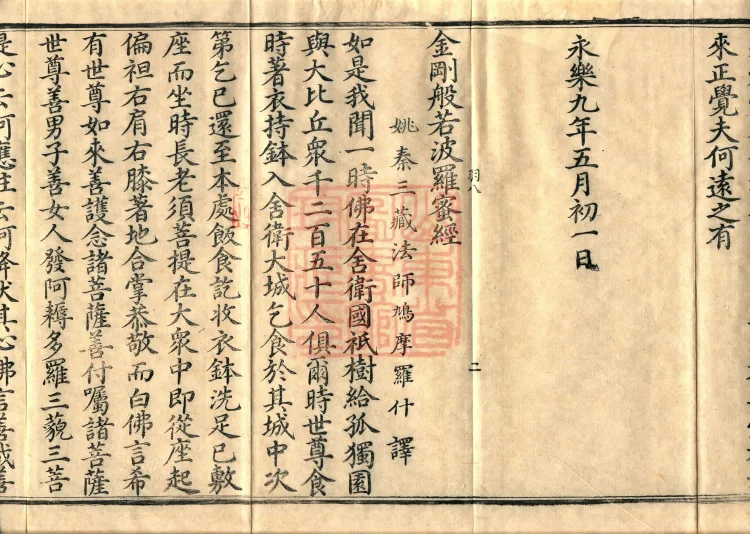 來正覺夫何遠之有
永樂九年五月初一日
羽八
二
金剛般若波羅蜜經
姚秦三藏法師鳩摩羅什譯
如是我聞一時佛在舍衛國祇樹給孤獨園
與大比丘眾千二百五十人俱爾時世尊食
時著衣持鉢入舍衛大城乞食於其城中次
第乞已還至本處飯食訖收衣鉢洗足已敷
座而坐時長老須菩提在大眾中即從座起
偏袒右肩右膝著地合掌恭敬而白佛言希
有世尊如來善護念諸菩薩善付囑諸菩薩
世尊善男子善女人發阿耨多羅三藐三菩
是心云何應住云何降伏其心佛言善哉善